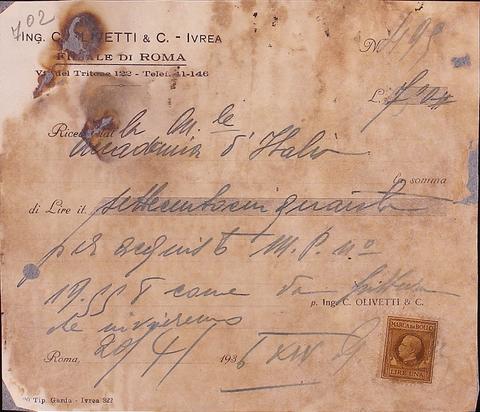 702
ING. C. OLIVETTI & C. - IVREA
FILIALE DI ROMA
Via del Tritone 122 - Telef. 41-146
N°
L.
Ricevuta dalla R.le
Accademia d'Italia
la somma
di Lire it. settecentocinquanta
per acquisto M.P. n°
come da
p. Ing. C. OLIVETTI & C.
Roma, 20/4/ 1936 XIV
MARCA DA BOLLO
LIRE UNA
Tip. Garda - Ivrea 322